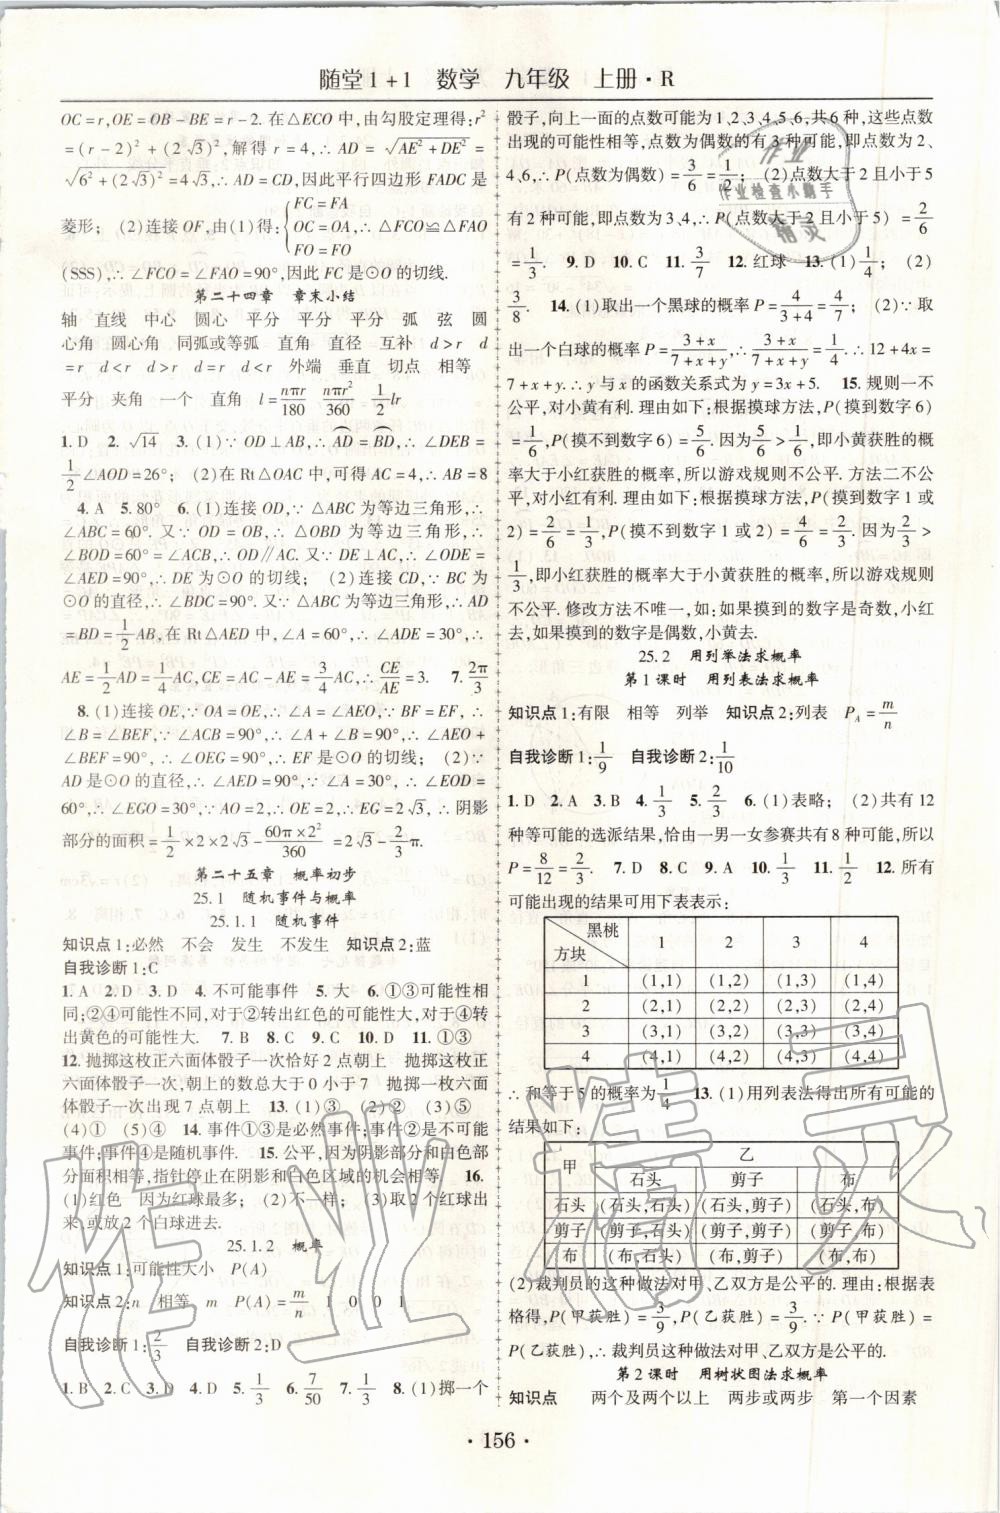 随堂1+1 数学 九年级 上册·R
OC=r,OE=OB-BE=r-2. 在△ECO中,由勾股定理得:r²
=(r-2)²+(2√3)²,解得r=4,∴AD=√(AE²+DE²)=
√(6²+(2√3)²)=4√3,∴AD=CD,因此平行四边形FADC是
菱形; (2)连接OF,由(1)得:{FC=FA OC=OA,∴△FCO≌△FAO FO=FO
(SSS),∴∠FCO=∠FAO=90°,因此FC是⊙O的切线.
第二十四章 章末小结
轴 直线 中心 圆心 平分 平分 平分 弧 弦 圆
心角 圆心角 同弧或等弧 直角 直径 互补 d>r d
=r d<r d>r d=r d<r d=r 外端 垂直 切点 相等
平分 夹角 一个 直角 l=nπr/180 nπr²/360 1/2lr
1. D 2. √14 3. (1)∵OD⊥AB,∴AD⌒=BD⌒,∴∠DEB=
1/2∠AOD=26°; (2)在Rt△OAC中,可得AC=4,∴AB=8
4. A 5. 80° 6. (1)连接OD,∵△ABC为等边三角形,∴
∠ABC=60°. 又∵OD=OB,∴△OBD为等边三角形,∴
∠BOD=60°=∠ACB,∴OD∥AC. 又∵DE⊥AC,∴∠ODE=
∠AED=90°,∴DE为⊙O的切线; (2)连接CD,∵BC为
⊙O的直径,∴∠BDC=90°. 又∵△ABC为等边三角形,∴AD
=BD=1/2AB,在Rt△AED中,∠A=60°,∴∠ADE=30°,∴
AE=1/2AD=1/4AC,CE=AC-AE=3/4AC,∴CE/AE=3. 7. 2π/3
8. (1)连接OE,∵OA=OE,∴∠A=∠AEO,∵BF=EF,∴
∠B=∠BEF,∵∠ACB=90°,∴∠A+∠B=90°,∴∠AEO+
∠BEF=90°,∴∠OEG=90°,∴EF是⊙O的切线; (2)∵
AD是⊙O的直径,∴∠AED=90°,∵∠A=30°,∴∠EOD=
60°,∴∠EGO=30°,∵AO=2,∴OE=2,∴EG=2√3,∴阴影
部分的面积=1/2×2×2√3-60π×2²/360=2√3-2/3π.
第二十五章 概率初步
25.1 随机事件与概率
25.1.1 随机事件
知识点1:必然 不会 发生 不发生 知识点2:蓝
自我诊断1:C
1. A 2. D 3. D 4. 不可能事件 5. 大 6. ①③可能性相
同;②④可能性不同,对于②转出红色的可能性大,对于④转
出黄色的可能性大. 7. B 8. C 9. C 10. D 11. ①③
12. 抛掷这枚正六面体骰子一次恰好2点朝上 抛掷这枚正
六面体骰子一次,朝上的数总大于0小于7 抛掷一枚六面
体骰子一次出现7点朝上 13. (1)③ (2)② (3)⑤
(4)① (5)④ 14. 事件①③是必然事件;事件②是不可能
事件;事件④是随机事件. 15. 公平,因为阴影部分和白色
部分面积相等,指针停止在阴影和白色区域的机会相等 16.
(1)红色 因为红球最多; (2)不一样; (3)取2个红球出
来,或放2个白球进去.
25.1.2 概率
知识点1:可能性大小 P(A)
知识点2:n 相等 m P(A)=m/n 1 0 0 1
自我诊断1:2/3 自我诊断2:D
1. B 2. C 3. D 4. D 5. 1/3 6. 7/50 7. 1/3 8. (1)掷一个
骰子,向上一面的点数可能为1、2、3、4、5、6,共6种,这些点数
出现的可能性相等,点数为偶数的有3种可能,即点数为2、
4、6,∴P(点数为偶数)=3/6=1/2; (2)点数大于2且小于5
有2种可能,即点数为3、4,∴P(点数大于2且小于5)=2/6
=1/3. 9. D 10. C 11. 3/7 12. 红球 13. (1)1/4; (2)
3/8. 14. (1)取出一个黑球的概率P=4/(3+4)=4/7; (2)∵取
出一个白球的概率P=(3+x)/(7+x+y),∴(3+x)/(7+x+y)=1/4. ∴12+4x=
7+x+y,∴y与x的函数关系式为y=3x+5. 15. 规则一不
公平,对小黄有利. 理由如下:根据摸球方法,P(摸到数字6)
=1/6,P(摸不到数字6)=5/6. 因为5/6>1/6,即小黄获胜的概
率大于小红获胜的概率,所以游戏规则不公平. 方法二不公
平,对小红有利. 理由如下:根据摸球方法,P(摸到数字1或
2)=2/6=1/3,P(摸不到数字1或2)=4/6=2/3. 因为2/3>
1/3,即小红获胜的概率大于小黄获胜的概率,所以游戏规则
不公平. 修改方法不唯一,如:如果摸到的数字是奇数,小红
去,如果摸到的数字是偶数,小黄去.
25.2 用列举法求概率
第1课时 用列表法求概率
知识点1:有限 相等 列举 知识点2:列表 P_A=m/n
自我诊断1:1/9 自我诊断2:1/10
1. D 2. A 3. B 4. 1/3 5. 2/3 6. (1)表略; (2)共有12
种等可能的选派结果,恰由一男一女参赛共有8种可能,所以
P=8/12=2/3. 7. D 8. C 9. A 10. 1/3 11. 1/3 12. 所有
可能出现的结果可用下表表示:
方块 黑桃 1 2 3 4
1 (1,1) (1,2) (1,3) (1,4)
2 (2,1) (2,2) (2,3) (2,4)
3 (3,1) (3,2) (3,3) (3,4)
4 (4,1) (4,2) (4,3) (4,4)
∴和等于5的概率为1/4 13. (1)用列表法得出所有可能的
结果如下:
甲 乙
石头 剪子 布
石头 (石头,石头) (石头,剪子) (石头,布)
剪子 (剪子,石头) (剪子,剪子) (剪子,布)
布 (布,石头) (布,剪子) (布,布)
(2)裁判员的这种做法对甲、乙双方是公平的. 理由:根据表
格得,P(甲获胜)=3/9,P(乙获胜)=3/9,∵P(甲获胜)=
P(乙获胜),∴裁判员这种做法对甲、乙双方是公平的.
第2课时 用树状图法求概率
知识点 两个及两个以上 两步或两步 第一个因素
·156·
作业
作业检查小助手
精灵
作业精灵